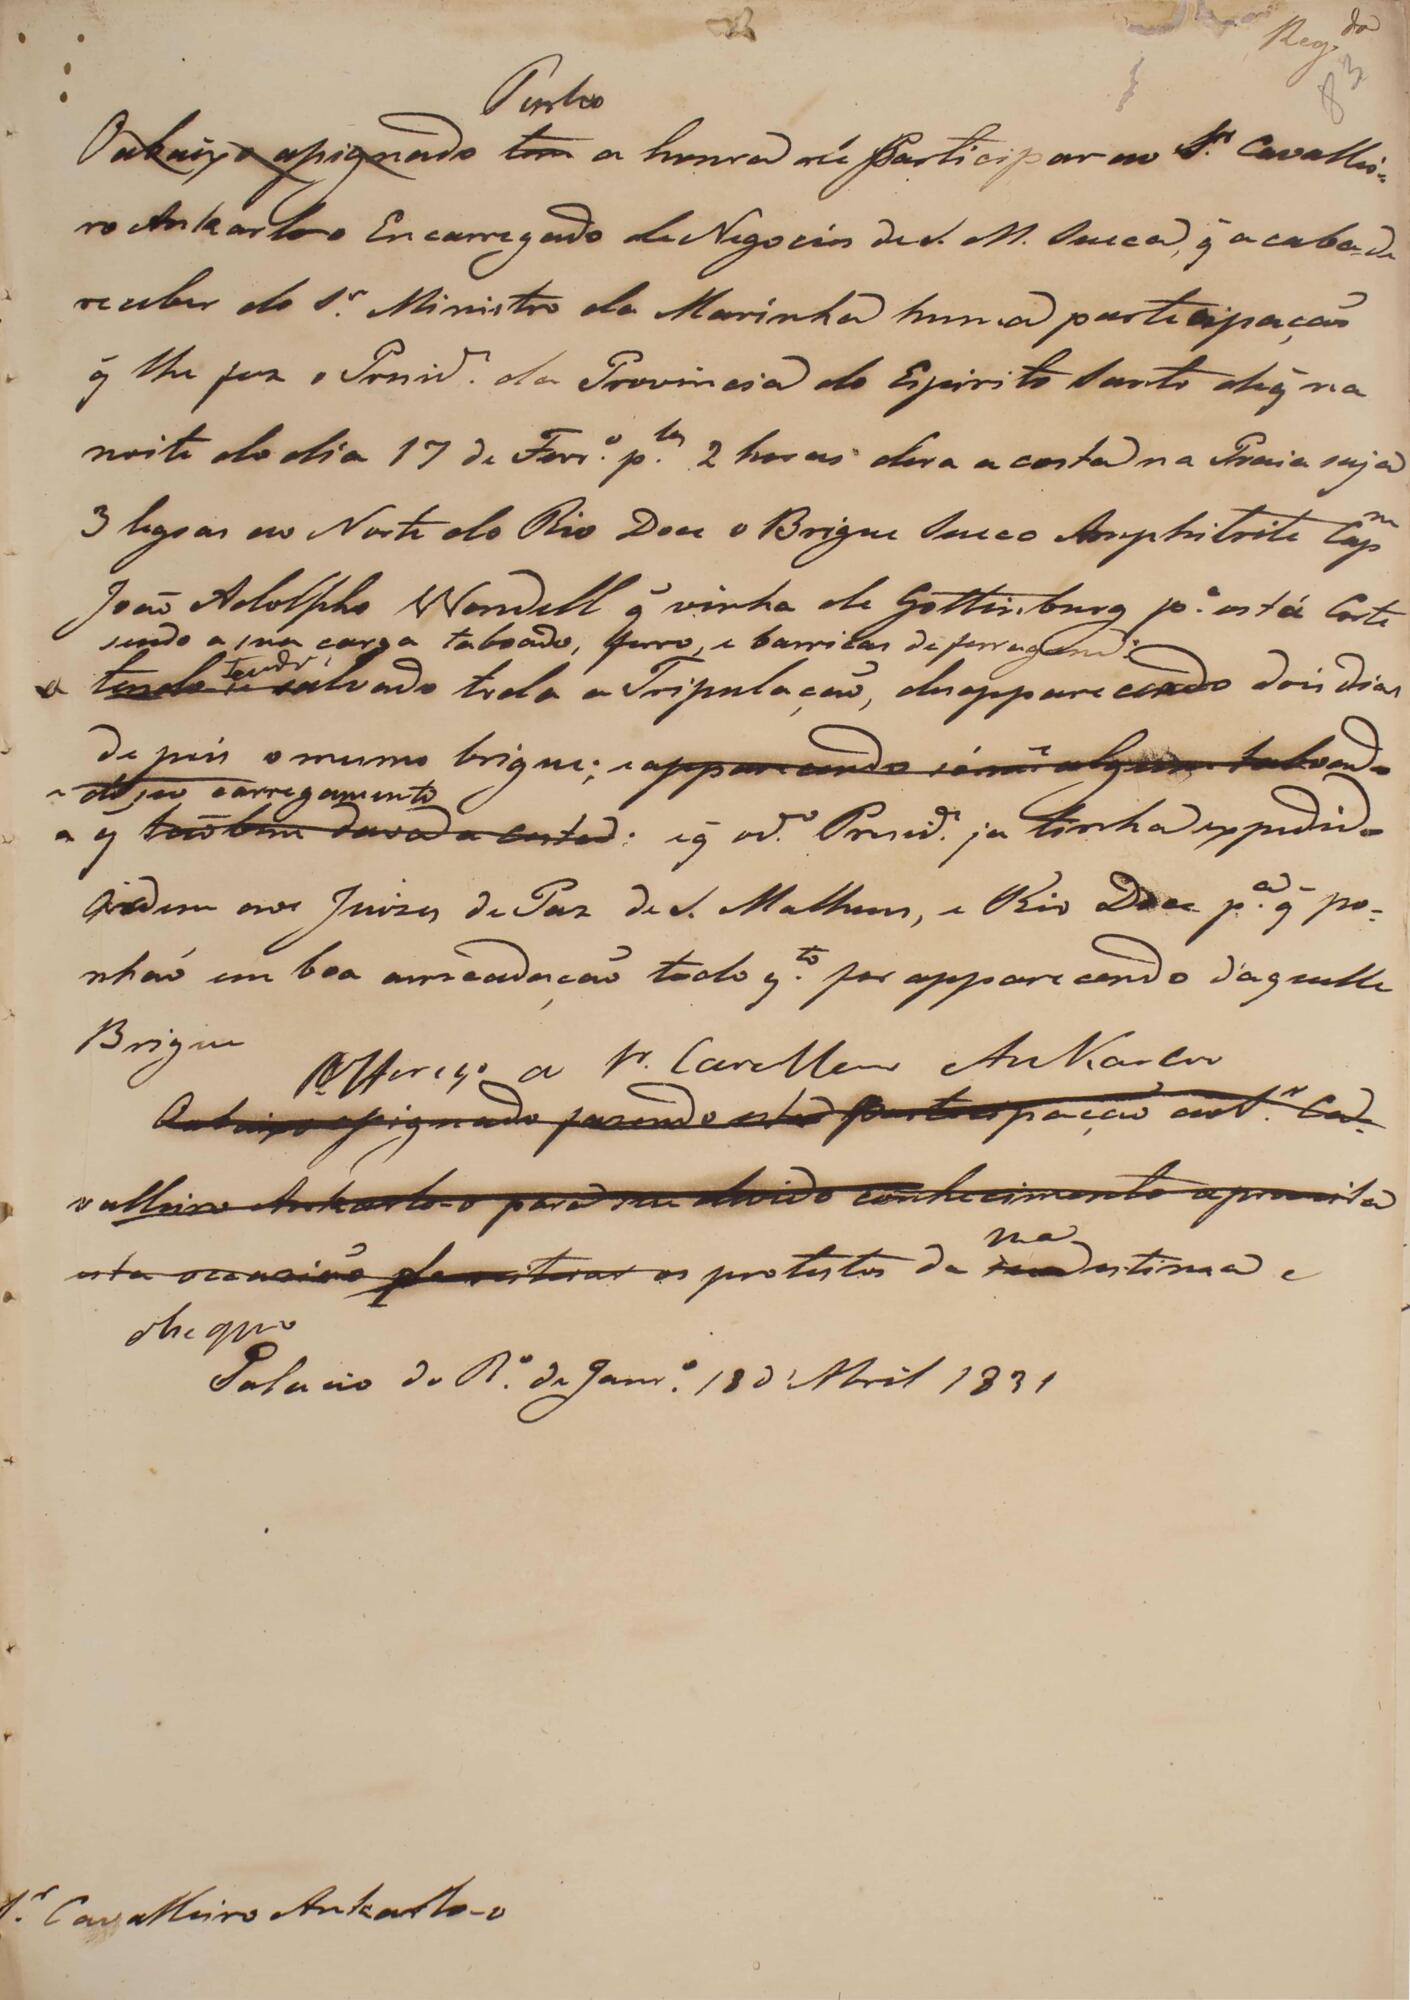 Reg.do
83
Tenho
O abaixo assignado tem a honra de Participar ao Sr. Cavallei-
ro Ankarloo Encarregado de Negocios de S. M. Sueca, q̃ acaba de
receber do Sr. Ministro da Marinha huma participação
q̃ lhe fez o Presid.e da Provincia do Espirito Santo de q̃ na
noite do dia 17 de Fevr.o p.las 2 horas dera a costa na Praia suja
3 legoas ao Norte do Rio Doce o Brigue Sueco Amphitrite Cap.m
João Adolpho Wendell q̃ vinha de Gottenburg p.a esta Corte
sendo a sua carga taboado, ferro, e barricas de ferragens:
tendo-se salvado toda a Tripulação, desapparecendo dois dias
depois o mesmo brigue; e apparecendo sóm.e algum taboado
e do seu carregamento
q̃ tão bem dava a costa: e q̃ o d.o Presid.e ja tinha expedido
ordem aos Juizes de Paz de S. Matheus, e Rio Doce p.a q̃ po-
nhão em boa arrecadação todo q.to for apparecendo d'aquelle
Brigue
Offereço a Sr. Cavalleiro Ankarloo
O abaixo assignado fazendo esta participação ao Sr. Ca-
valleiro Ankarloo para seu devido conhecimento aproveita
esta occasião de reiterar os protestos de sua estima e
ma
obsequio
Palacio do R.o de Janr.o 18 d'Abril 1831
Sr. Cavalleiro Ankarloo